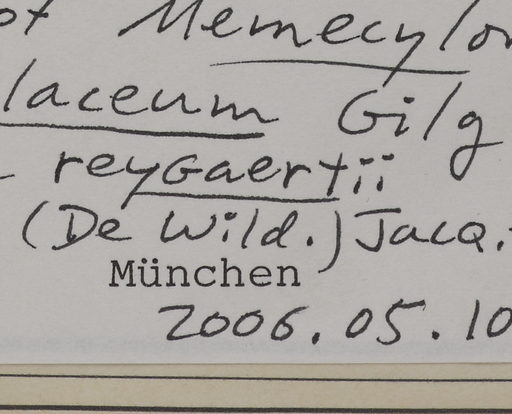 ot Memecylon
laceum Gilg
- reygaertii
(De Wild.) Jacq.-
München
2006.05.10